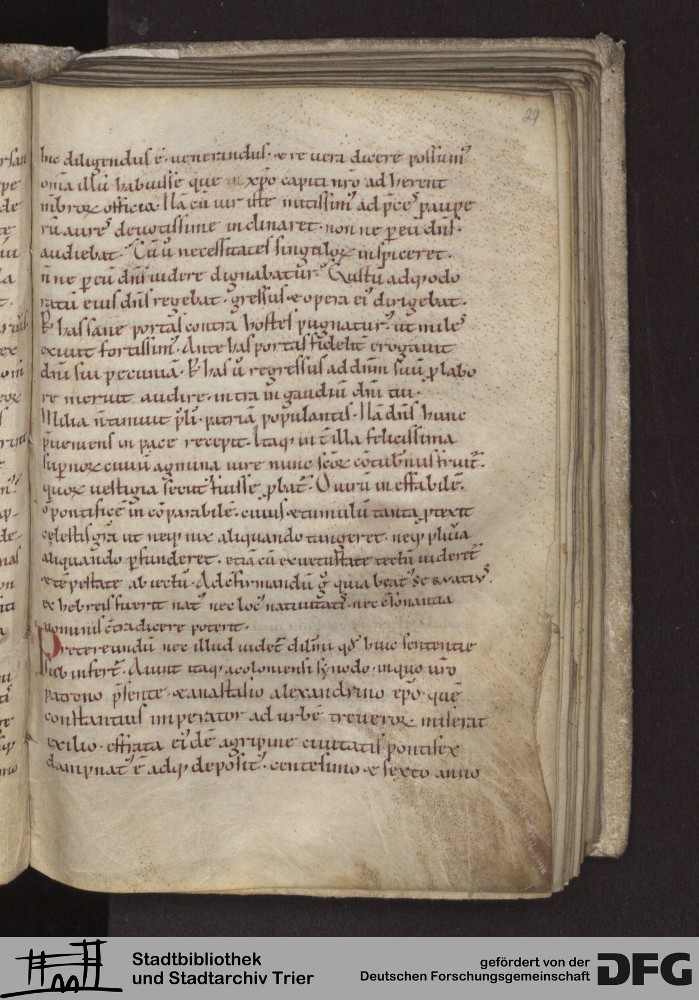 29
huc diligendus ē. uenerandus. & re uera dicere possum᾽
om̄ia illū habuisse que xp̄o capiti nr̄o adherent
mbroꝝ officia. Nā cū uir iste mitissim᾽ ad p̄ces paupe
rū aures deuotissime inclinaret. non ne p eū dn̄s.
audiebat. Cū ū necessitates singuloꝝ inspiceret.
n̄ ne p eū dn̄s uidere dignabatur. adq; odo
ratū eius dn̄s regebat. gressus & opera ei᾽ dirigebat.
has sane portas contra hostes pugnatur᾽. ut miles
exiuit fortissim᾽. Ante has portas fidelit erogauit
dn̄i sui pecuniā. has ū regressus ad dn̄m suū p labo
re meruit audire. intra in gaudiū dn̄i tui.
n̄ timuit p̄li patriā populantis. Nā dn̄s hunc
p̄ueniens in pace recepit. Itaq; int̄ illa felicissima
sup̄noꝝ ciuiū agmina uire nunc sc̄oꝝ cōtub̄nius fruit᾽.
quoꝝ uestigia secut᾽ fuisse pbat᾽. O uirū ineffabilē.
o pontificē incōparabilē. cuius & tumulū tanta p̄texit
celestis gr̄a ut neq; nix aliquando tangeret. neq; pluuia
aliquando pfunderet. etiā cū ex uetustate tectū uideret᾽
& tēpestate ab uectū. Ad c̄firmandū g᾽ quia beat᾽ seruatius
ex hebreis fuerit nat᾽ nec loc᾽ natiuitatis. nec c̄sonantia
nominis c̄tradicere poterit.
Pretereundū nec illud uidet᾽ dilm̄i qd̄ huic sententie
sub infert᾽. Aiunt itaq; a coloniensi synodo. in quo nr̄o
patrono p̄sente. & anastasio alexandrino ep̄o. quē
constantius imperator ad urbē treueroꝝ miserat
exilio. effrata ei᾽dē agripine ciuitatis pontifex
dampnat᾽ ē adq; deposit᾽. centesimo & sexto anno
Stadtbibliothek
und Stadtarchiv Trier
gefördert von der
Deutschen Forschungsgemeinschaft
DFG